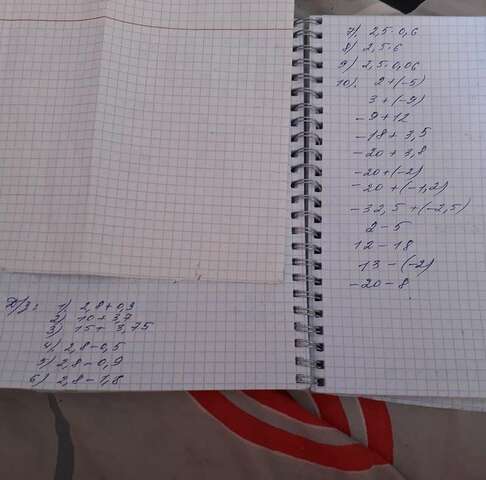 Д/з: 1) 2,8+0,3
2) 10+3,7
3) 15+3,75
4) 2,8-0,5
5) 2,8-0,9
6) 2,8-1,8
7) 2,5·0,6
8) 2,5·6
9) 2,5·0,06
10). 2+(-5)
3+(-9)
-9+12
-18+3,5
-20+3,8
-20+(-2)
-20+(-1,2)
-32,5+(-2,5)
2-5
12-18
13-(-2)
-20-8.